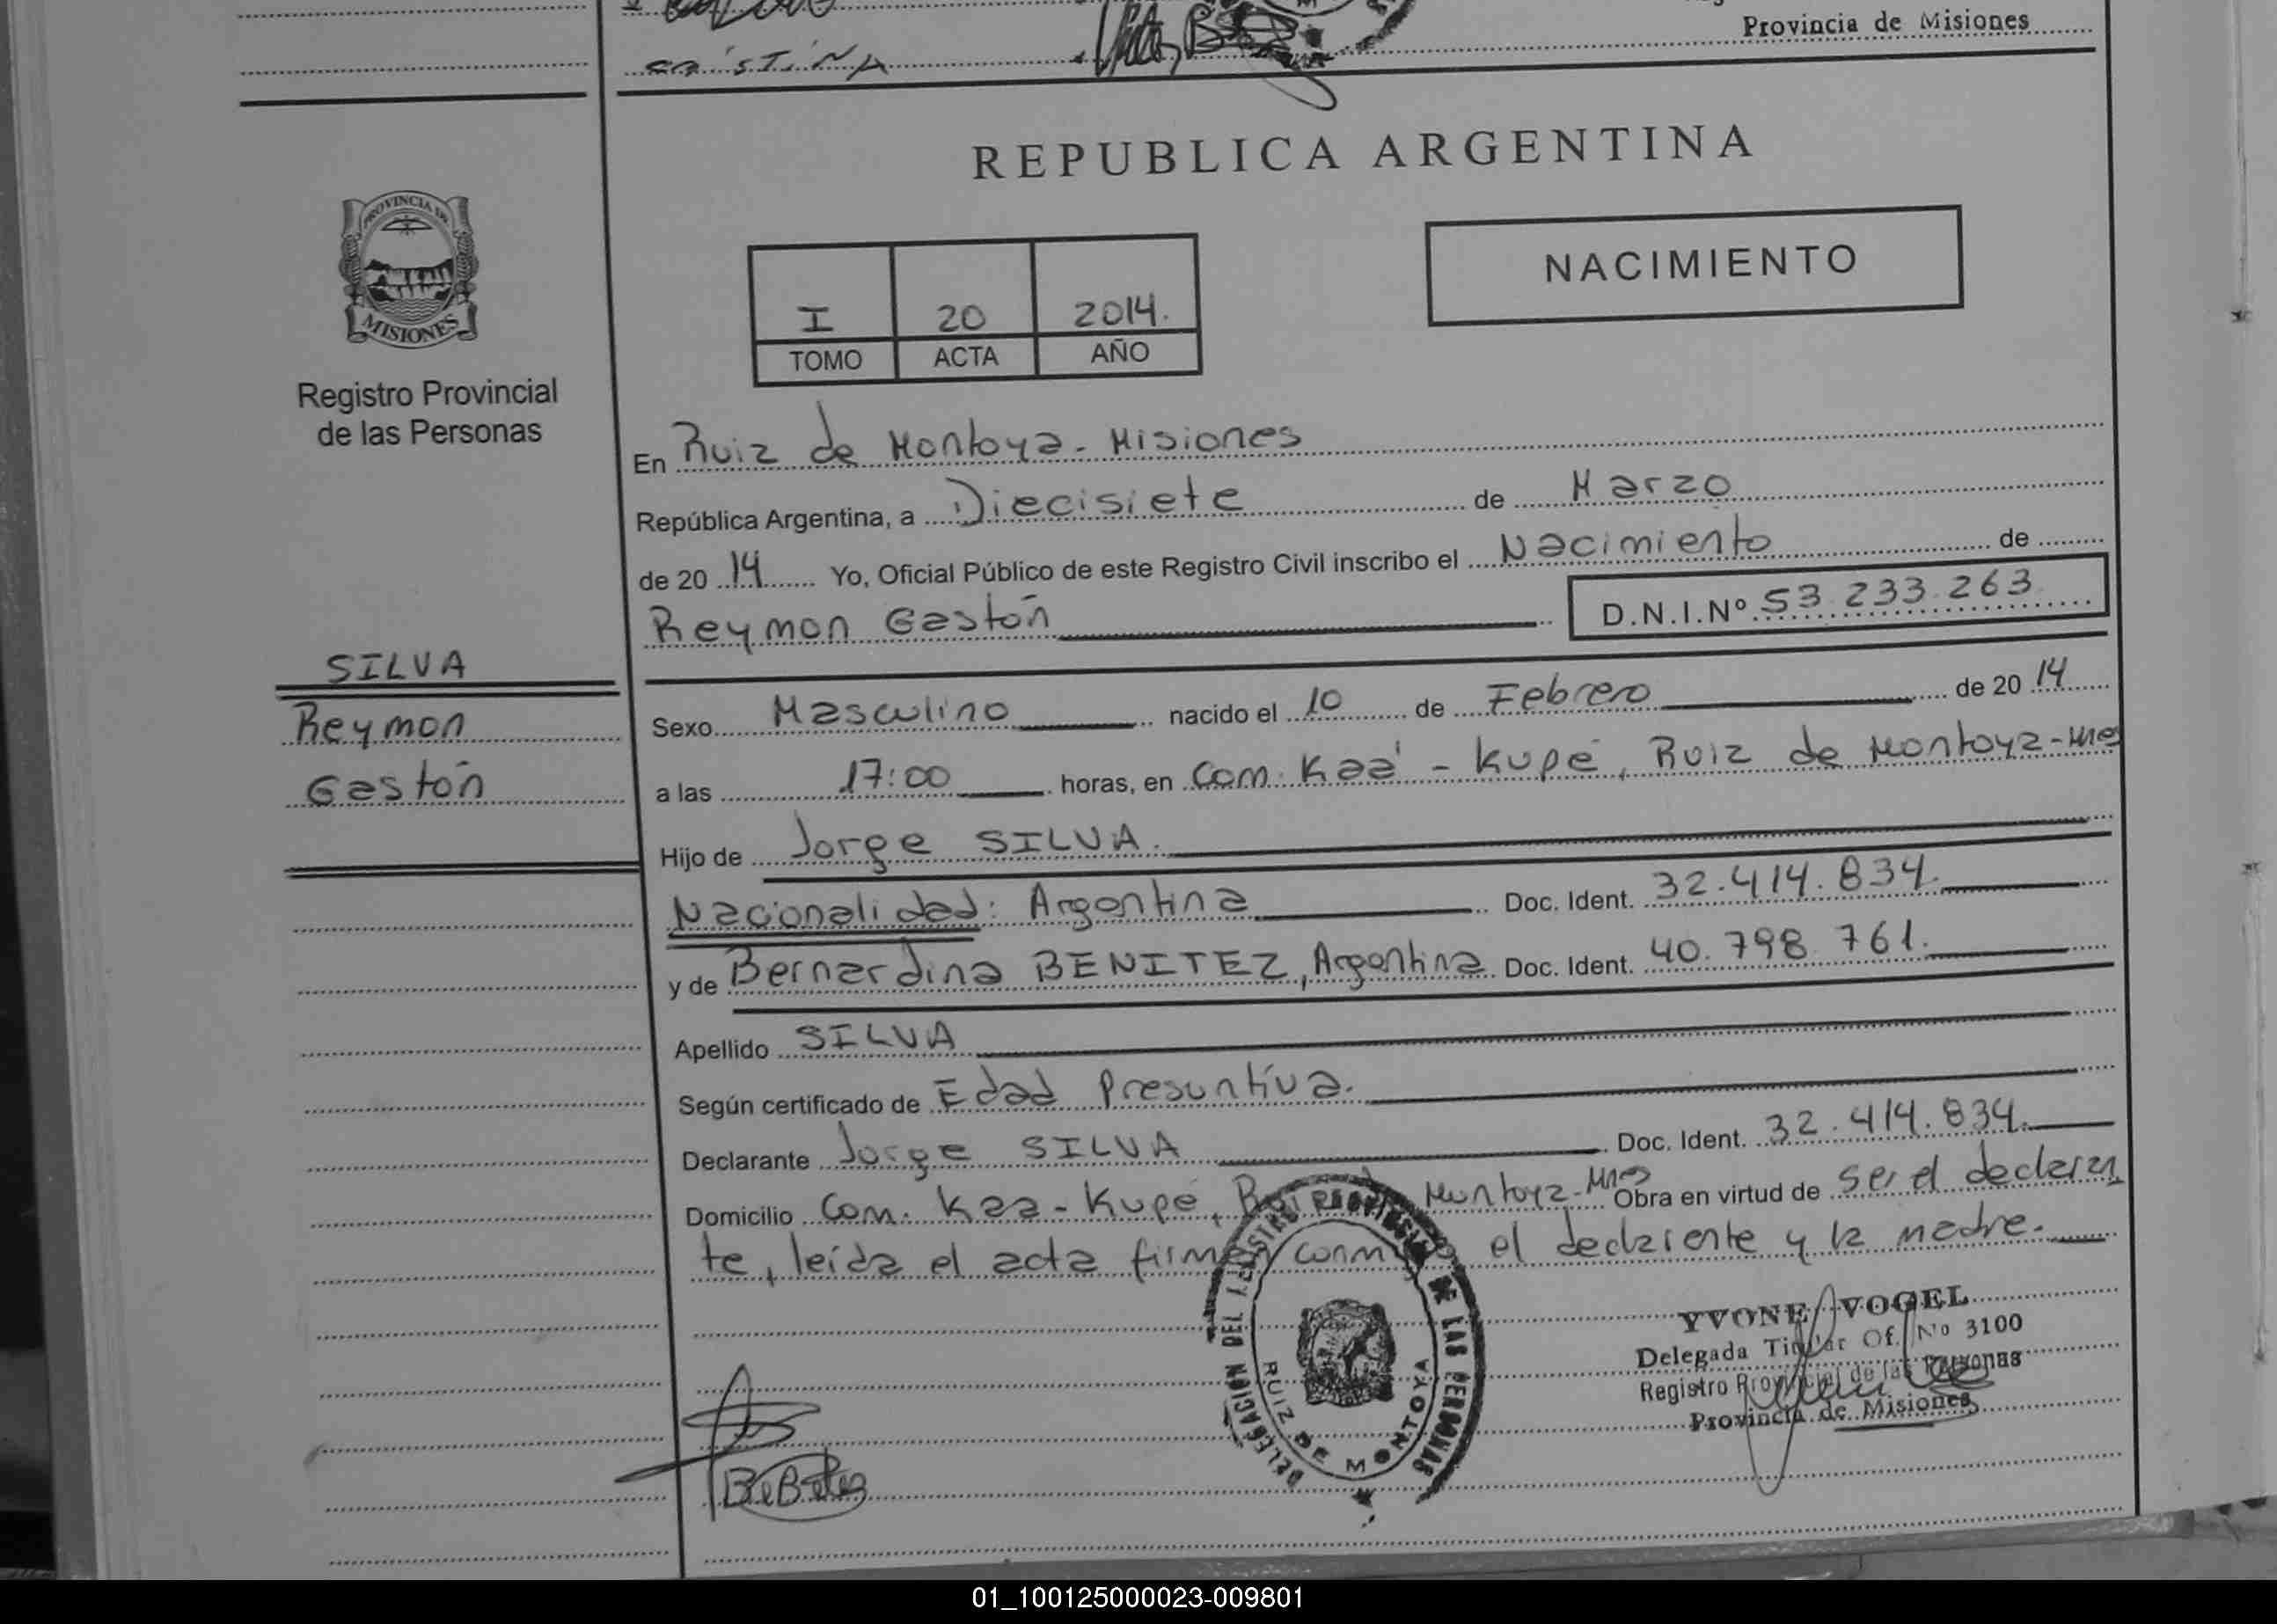 Provincia de Misiones
CRISTINA
REPUBLICA ARGENTINA
PROVINCIA DE
MISIONES
Registro Provincial
de las Personas
NACIMIENTO
I 20 2014.
TOMO ACTA AÑO
En Ruiz de Montoya - Misiones
República Argentina, a Diecisiete de Marzo
de 20 14 Yo, Oficial Público de este Registro Civil inscribo el Nacimiento de
Reymon Gastón D.N.I.Nº 53.233.263
SILVA
Reymon
Gastón
Sexo Masculino nacido el 10 de Febrero de 20 14
a las 17:00 horas, en Com. Kaa' - Kupé, Ruiz de Montoya-Mnes
Hijo de Jorge SILVA.
Nacionalidad: Argentina Doc. Ident. 32.414.834.
y de Bernardina BENITEZ, Argentina Doc. Ident. 40.798.761.
Apellido SILVA
Según certificado de Edad Presuntiva.
Declarante Jorge SILVA Doc. Ident. 32.414.834.
Domicilio Com. Kaa-Kupé, Montoya-Mnes Obra en virtud de ser el declaran
te, leída el acta firman conmigo el declarante y la madre.
DELEGACION DEL REGISTRO PROVINCIAL DE LAS PERSONAS
RUIZ DE MONTOYA
YVONE VOGEL
Delegada Titular Of. Nº 3100
Registro Provincial de las Personas
Provincia de Misiones
01_100125000023-009801